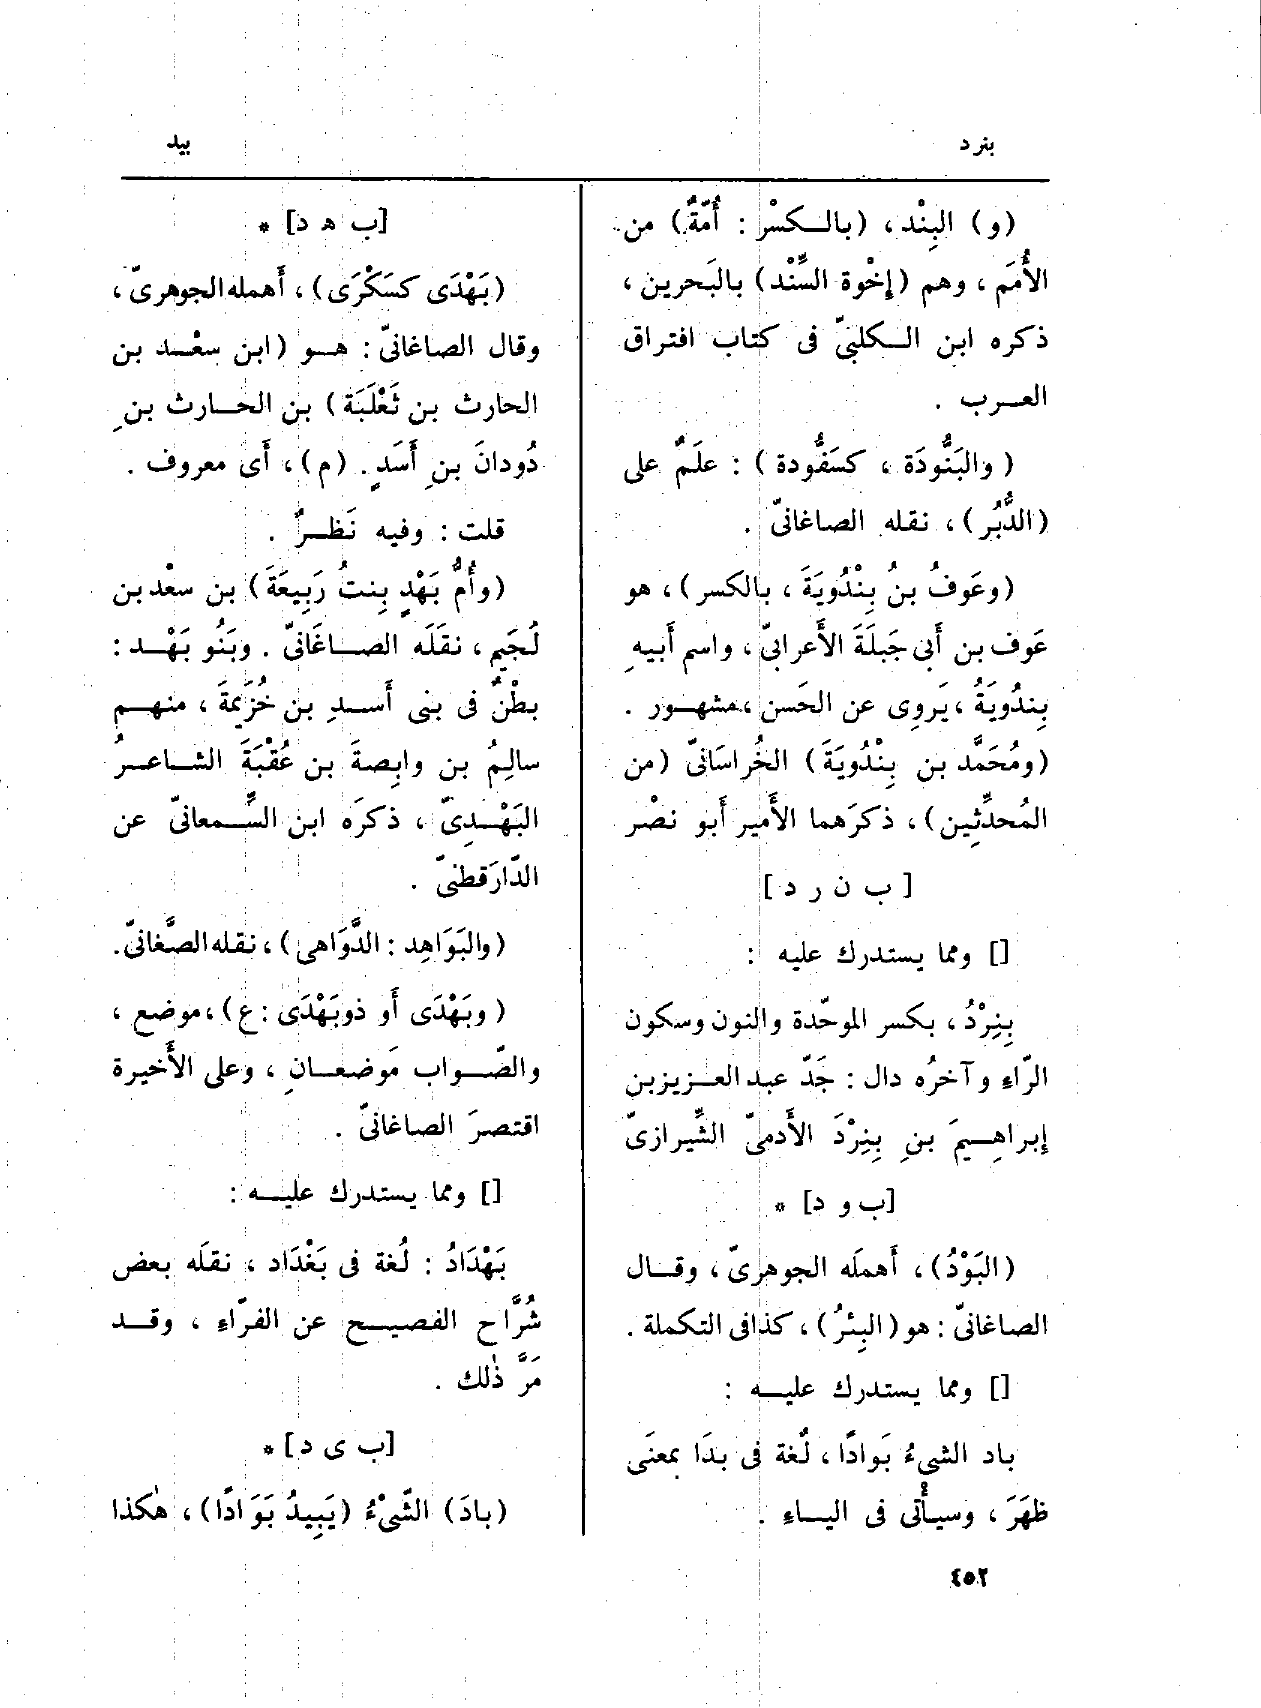 بنرد
بيد
(و) البِنْد، (بالـكسْر : أُمّةٌ) من
الأُمَم، وهم (إخْوة السِّنْد) بالبَحرين،
ذكره ابن الـكلبىّ فى كتاب افتراق
العرب .
(والبَنُّودَة، كسَفُّودة) : علَمٌ على
(الدُّبُر)، نقله الصاغانىّ .
(وعَوفُ بنُ بِنْدُويَةَ، بالكسر)، هو
عَوف بن أَبى جَبلَةَ الأَعرابىّ، واسم أَبيهِ
بِندُويَةُ، يَروِى عن الحَسن، مشهور .
(ومُحَمَّد بن بِنْدُويَةَ) الخُراسَانىّ (من
المُحدِّثِين)، ذكرَهما الأَمير أَبو نصْر
[ب ن ر د]
[] ومما يستدرك عليه :
بِنِرْدُ، بكسر الموحّدة والنون وسكون
الرّاءِ وآخرُه دال : جَدّ عبد العزيز بن
إبراهِيمَ بنِ بِنِرْدَ الأَدمىّ الشِّيرازىّ
[ب و د] *
(البَوْدُ)، أَهملَه الجوهرىّ، وقال
الصاغانىّ : هو (البِئرُ)، كذا فى التكملة .
[] ومما يستدرك عليه :
باد الشىءُ بَوادًا، لُغة فى بدَا بمعنَى
ظهَرَ، وسيأْتى فى الياءِ .
[ب ه د] *
(بَهْدَى كسَكْرَى)، أَهمله الجوهرىّ،
وقال الصاغانىّ : هو (ابن سعْد بن
الحارث بن ثَعْلَبَة) بن الحارث بنِ
دُودانَ بنِ أَسَدٍ . (م)، أَى معروف .
قلت : وفيه نَظرٌ .
(وأُمُّ بَهْدٍ بِنتُ رَبِيعَةَ) بن سعْد بن
لُجَيم، نقَلَه الصاغَانىّ . وبَنُو بَهْد :
بطْنٌ فى بنى أَسدِ بن خُزَيمَةَ، منهم
سالِمُ بن وابِصةَ بن عُقْبَةَ الشاعرُ
البَهْدِىّ، ذكرَه ابن السَّمعانىّ عن
الدّارَقطنىّ .
(والبَوَاهِد : الدَّوَاهى)، نقله الصَّغانىّ.
(وبَهْدَى أَو ذوبَهْدَى : ع)، موضع،
والصّواب مَوضعانِ، وعلى الأَخيرة
اقتصرَ الصاغانىّ .
[] ومما يستدرك عليه :
بَهْدَادُ : لُغة فى بَغْدَاد، نقلَه بعض
شُرَّاح الفصيح عن الفرّاءِ، وقد
مَرَّ ذٰلك .
[ب ى د] *
(بادَ) الشّىْءُ (يَبِيدُ بَوَادًا)، هٰكذا
٤٥٢